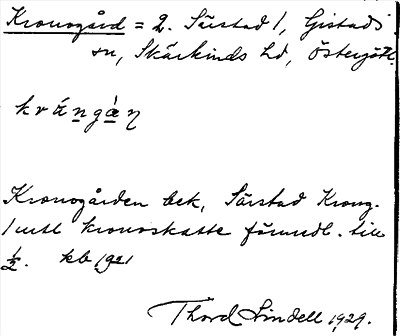 Kronogård = 2. Särstad 1, Gistads
sn, Skärkinds hd, Östergötl.
Kronogården bek, Särstad Krong.
1 mtl kronoskatte förmedl. till
½. kb 1921
Thord Lindell 1929.